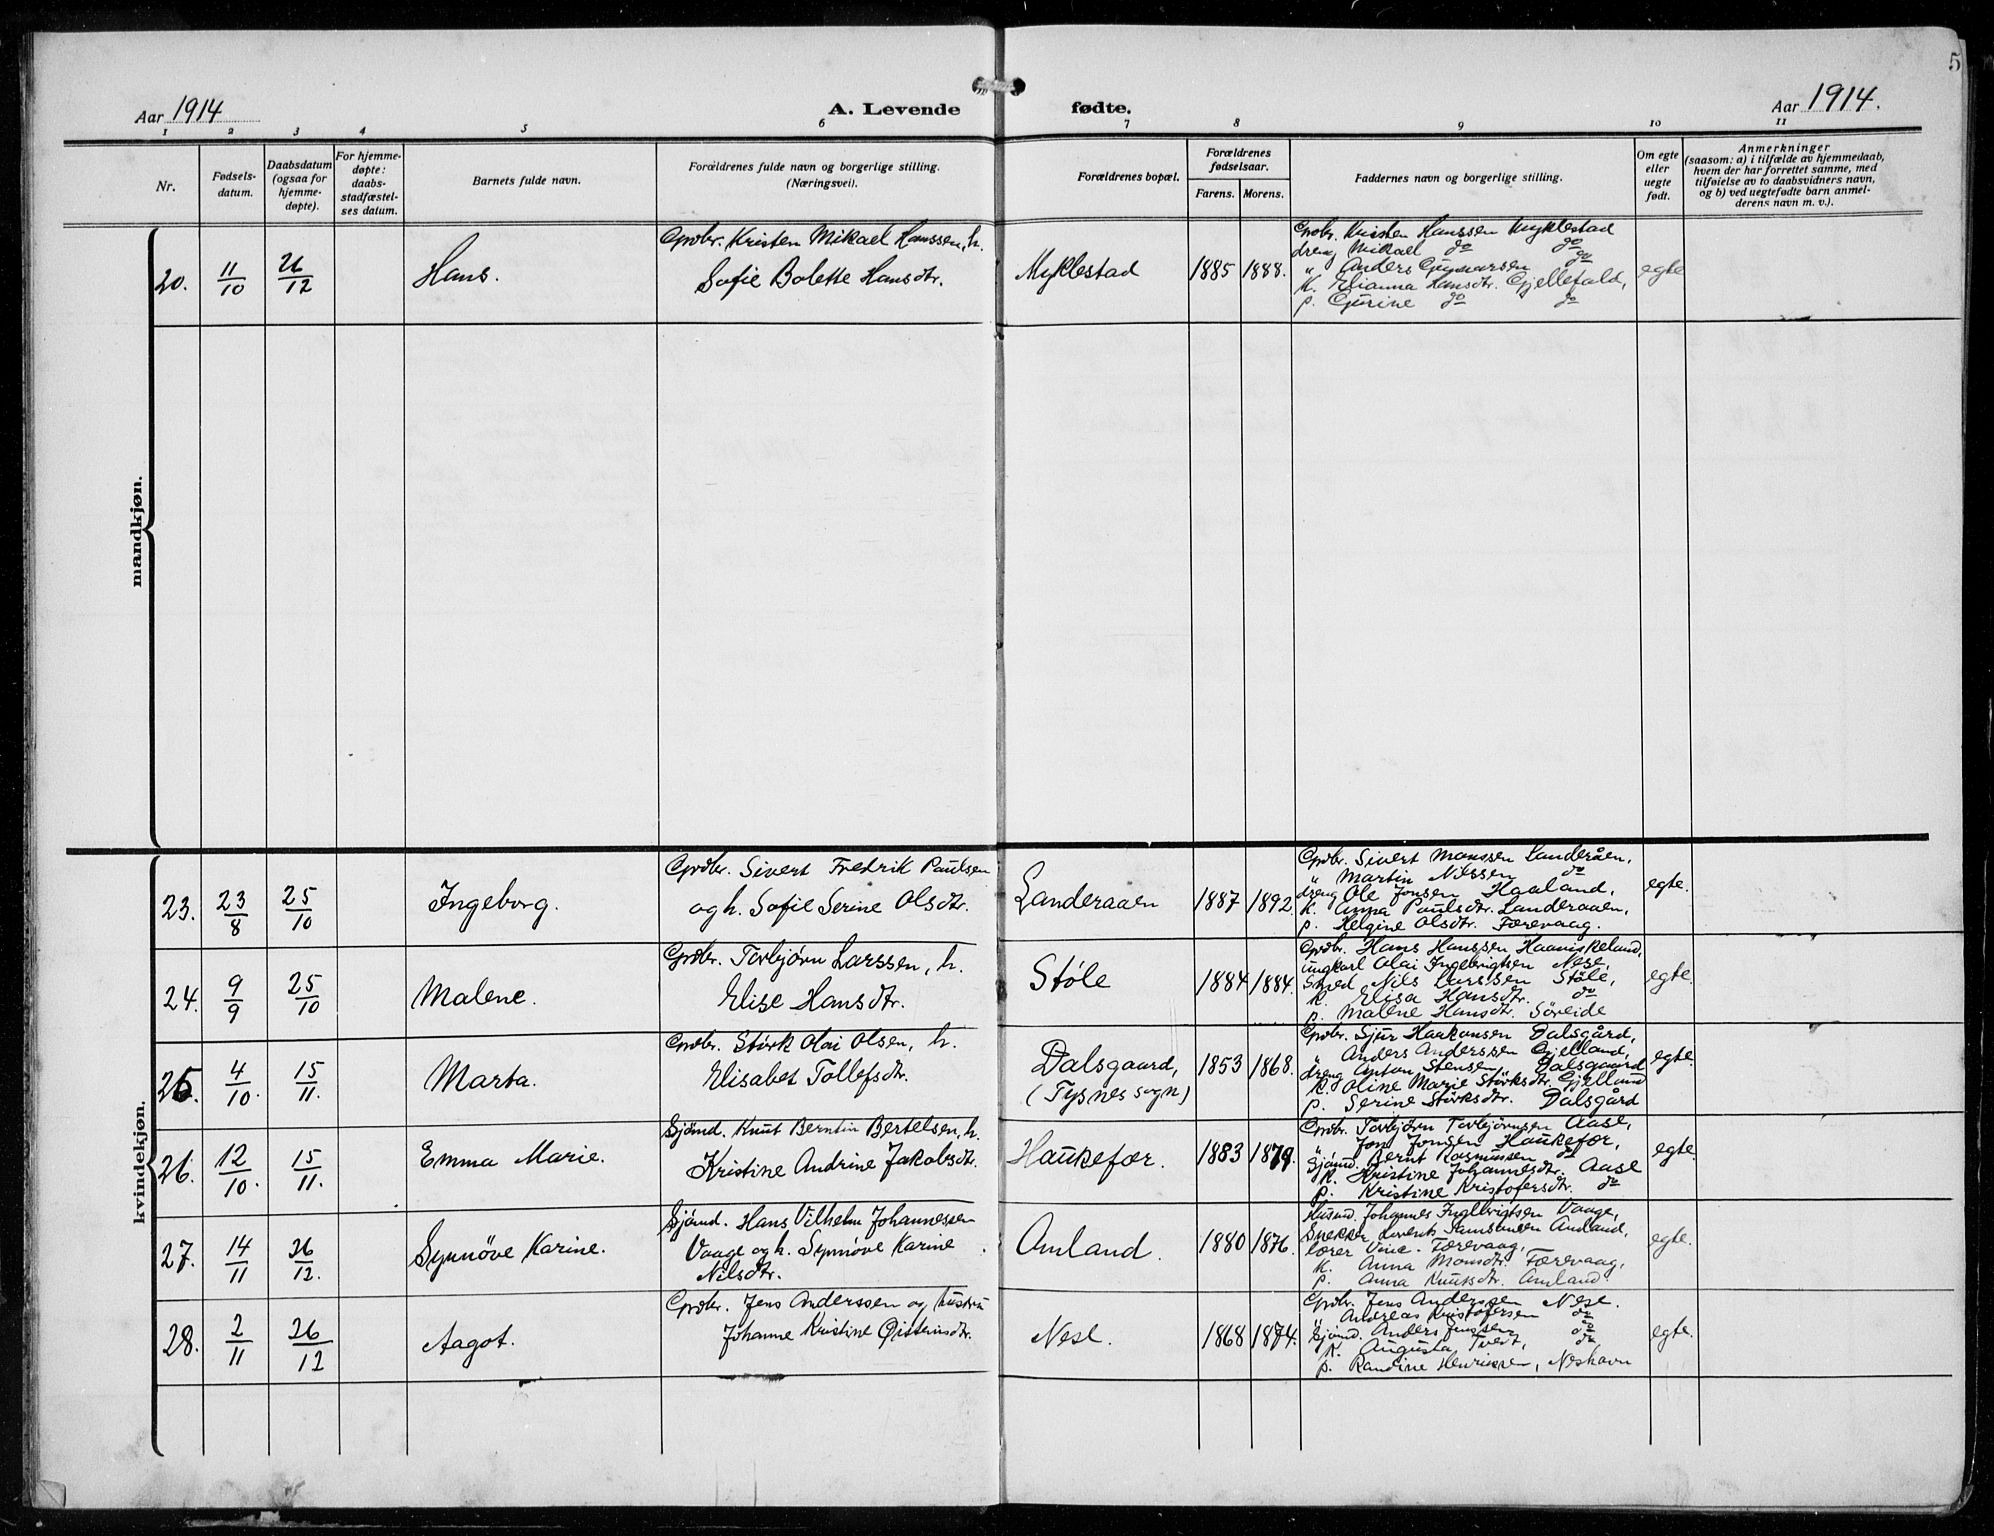 5
Aar 1914
A. Levende fødte.
Aar 1914.
1 2 3 4 5 6 7 8 9 10 11
Nr.
Fødsels-
datum.
Daabsdatum
(ogsaa for
hjemme-
døpte).
For hjemme-
døpte:
daabs-
stadfæstel-
ses datum.
Barnets fulde navn.
Forældrenes fulde navn og borgerlige stilling.
(Næringsvei).
Forældrenes bopæl.
Forældrenes
fødselsaar.
Farens. Morens.
Faddernes navn og borgerlige stilling.
Om egte
eller
uegte
født.
Anmerkninger
(saasom: a) i tilfælde av hjemmedaab,
hvem der har forrettet samme, med
tilføielse av to daabsvidners navn,
og b) ved uegtefødte barn anmel-
derens navn m. v.).
mandkjøn.
20. 11/10 26/12 Hans.
Grdbr. Kristen Mikael Hanssen, h.
Sofie Bolette Hansdtr.
Myklestad 1885 1888.
Grdbr. Kristen Hanssen Myklestad
dreng Mikael do do
" Anders Gunnarsen do
k. Elianna Hansdtr. Gjellefald,
p. Gurine do do
egte
kvindekjøn.
23. 23/8 25/10 Ingeborg.
Grdbr. Sivert Fredrik Paulsen
og h. Sofie Serine Olsdtr.
Landeraaen 1887 1892.
Grdbr. Sivert Monssen Landeråen,
" Martin Nilssen do
dreng Ole Jonsen Haaland,
k. Anna Paulsdtr. Landeraaen,
p. Helgine Olsdtr. Færevaag.
egte.
24. 9/9 25/10 Malene.
Grdbr. Torbjørn Larssen, h.
Elise Hansdtr.
Støle 1884 1884.
Grdbr. Hans Hanssen Haaviskeland,
ungkarl Olai Ingebrigtsen Nese,
Smed Nils Larssen Støle,
k. Elisa Hansdtr. do
p. Malene Hansdtr. Søreide
egte.
25. 4/10. 15/11. Marta.
Grdbr. Størk Olai Olsen, h.
Elisabet Tollefsdtr.
Dalsgaard,
(Tysnes sogn)
1853 1868.
Grdbr. Sjur Haakonsen Dalsgård,
" Anders Anderssen Gjelland,
dreng Anton Stensen Dalsgaard
k. Oline Marie Størksdtr. Gjelland
p. Serine Størksdtr. Dalsgård
egte.
26. 12/10. 15/11. Emma Marie.
Sjømd. Knut Berntin Bertelsen, h.
Kristine Andrine Jakobsdtr.
Haukefær. 1883 1879.
Grdbr. Torbjørn Torbjørnsen Aase,
" Jon Jonsen Haukefær,
Sjømd. Bernt Rasmussen do
k. Kristine Johannesdtr. Aase
p. Kristine Kristofersdtr. do
egte.
27. 14/11 26/12. Synnøve Karine.
Sjømd. Hans Vilhelm Johannessen
Vaage og h. Synnøve Karine
Nilsdtr.
Amland. 1880 1876.
Husmd. Johannes Ingebrigtsen Vaage,
Snekker Samsonsen Amland,
lærer Vine. Færevaag,
k. Anna Monsdtr. Færevaag,
p. Anna Knutsdtr. Amland
egte.
28. 2/11 26/12 Aagot.
Grdbr. Jens Anderssen og hustru
Johanne Kristine Øisteinsdtr.
Nese. 1868 1874.
Grdbr. Jens Anderssen Nese.
" Andreas Kristofersen do
Sjømd. Anders Jenssen do
k. Augusta Tvedt, do
p. Randine Henriksen, Neshavn
egte.